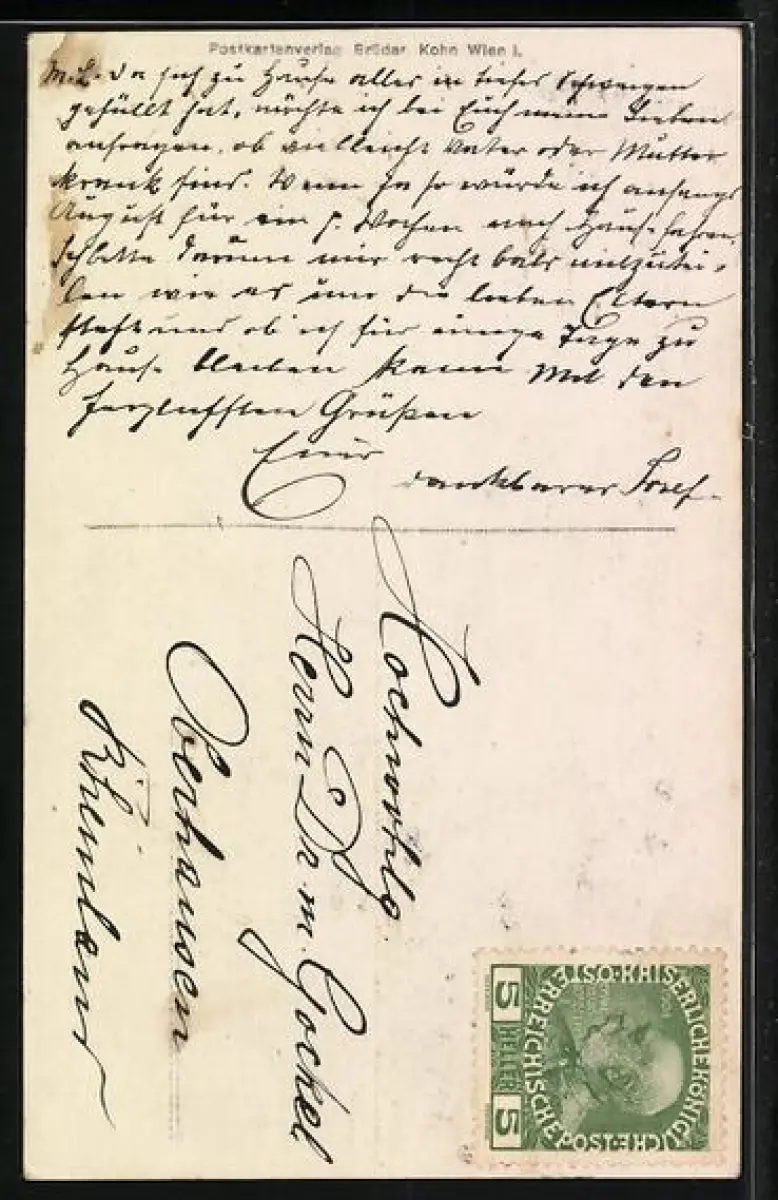 Postkartenverlag Brüder Kohn Wien I.
M. L. Da sich zu Hause alles in tiefes Schweigen
gehüllt hat, möchte ich bei Euch meine Lieben
anfragen, ob vielleicht Vater oder Mutter
krank sind. Wenn ja so würde ich anfangs
August für ein p. Wochen nach Hause fahren.
Ich bitte darum mir recht bald mitzutei-
len wie es um die lieben Eltern
steht und ob ich für einige Tage zu
Hause bleiben kann. Mit den
herzlichsten Grüßen
Euer
dankbarer Josef.
Hochwohlg
Herrn Dr. m. Gockel
Oberhausen
Rheinland
KAISERLICHE KÖNIGLICHE
ÖSTERREICHISCHE POST
5 HELLER 5